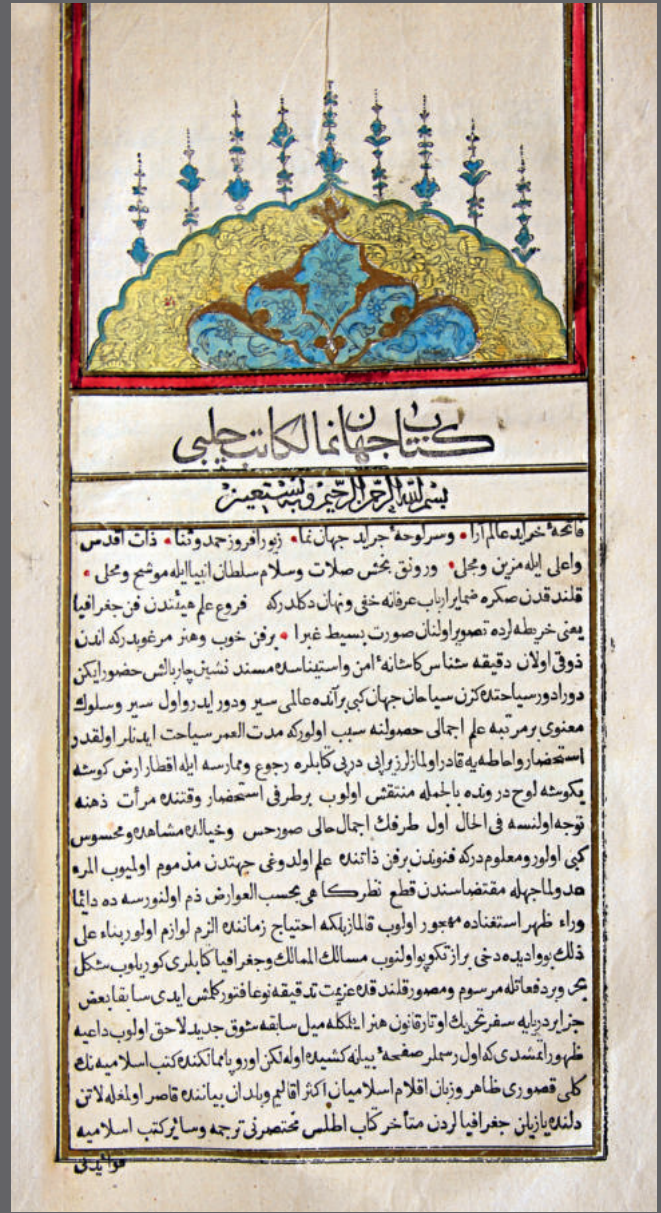 كتاب جهان نما لكاتب چلبي
بسم الله الرحمن الرحيم وبه نستعين
فاتحهٔ خرايد عالم آرا • وسرلوحهٔ جرايد جهان نما • زيور افروز حمد وثنا • ذات اقدس
واعلى ايله مزين ومجلى • ورونق بخش صلات وسلام سلطان انبيا ايله موشح ومحلى •
قلند قدن صكره ضماير ارباب عرفانه خفى ونهان دكلدركه فروع علم هيئتدن فن جغرافيا
يعنى خريطه لرده تصوير اولنان صورت بسيط غبرا • برفن خوب وهنر مرغوبدركه اندن
ذوقى اولان دقيقه شناس كاشانهٔ امن واستيناسده مسند نشين چاربالش حضور ايكن
دورادور سياحتده كزن سياحان جهان كبى برآنده عالمى سير ودور ايدر واول سير وسلوك
معنوى برمرتبه علم اجمالى حصولنه سبب اولوركه مدت العمر سياحت ايدنلر اولقدر
استحضار واحاطه يه قادر اولمازلر زيرا پى درپى كتابلره رجوع وممارسه ايله اقطار ارض كوشه
بكوشه لوح درونده بالجمله منتقش اولوب برطرفى استحضار وقتنده مرأت ذهنه
توجه اولنسه فى الحال اول طرفك اجمال حالى صور حس وخيالده مشاهد ومحسوس
كبى اولور ومعلومدركه فنوندن برفن ذاتنده علم اولدوغى جهتدن مذموم اولميوب المرء
عدو لما جهله مقتضاسندن قطع نظر كاهى بحسب العوارض ذم اولنورسه ده دائما
وراء ظهر استغناده مهجور اولوب قالماز بلكه احتياج زماننده الزم لوازم اولور بناء على
ذلك بو واديده دخى براز تكوپو اولنوب مسالك الممالك وجغرافيا كتابلرى كوريلوب شكل
بحر وبر دفعاتله مرسوم ومصور قلندقده عزيمت تدقيقه نوعا فتور كلمش ايدى سابقا بعض
جزاير دريايه سفر تحريك اوتار قانون هنر ايتمكله ميل سابقه شوق جديد لاحق اولوب داعيه
ظهور اتمشدى كه اول رسملر صفحهٔ بيانه كشيده اوله لكن اوروپا ممالكنده كتب اسلاميه نك
كلى قصورى ظاهر وزبان اقلام اسلاميان اكثر اقاليم وبلدان بياننده قاصر اولمغله لاتن
دلنده يازيلن جغرافيالردن متأخر كتاب اطلس مختصرنى ترجمه وسائر كتب اسلاميه
فوائدنى